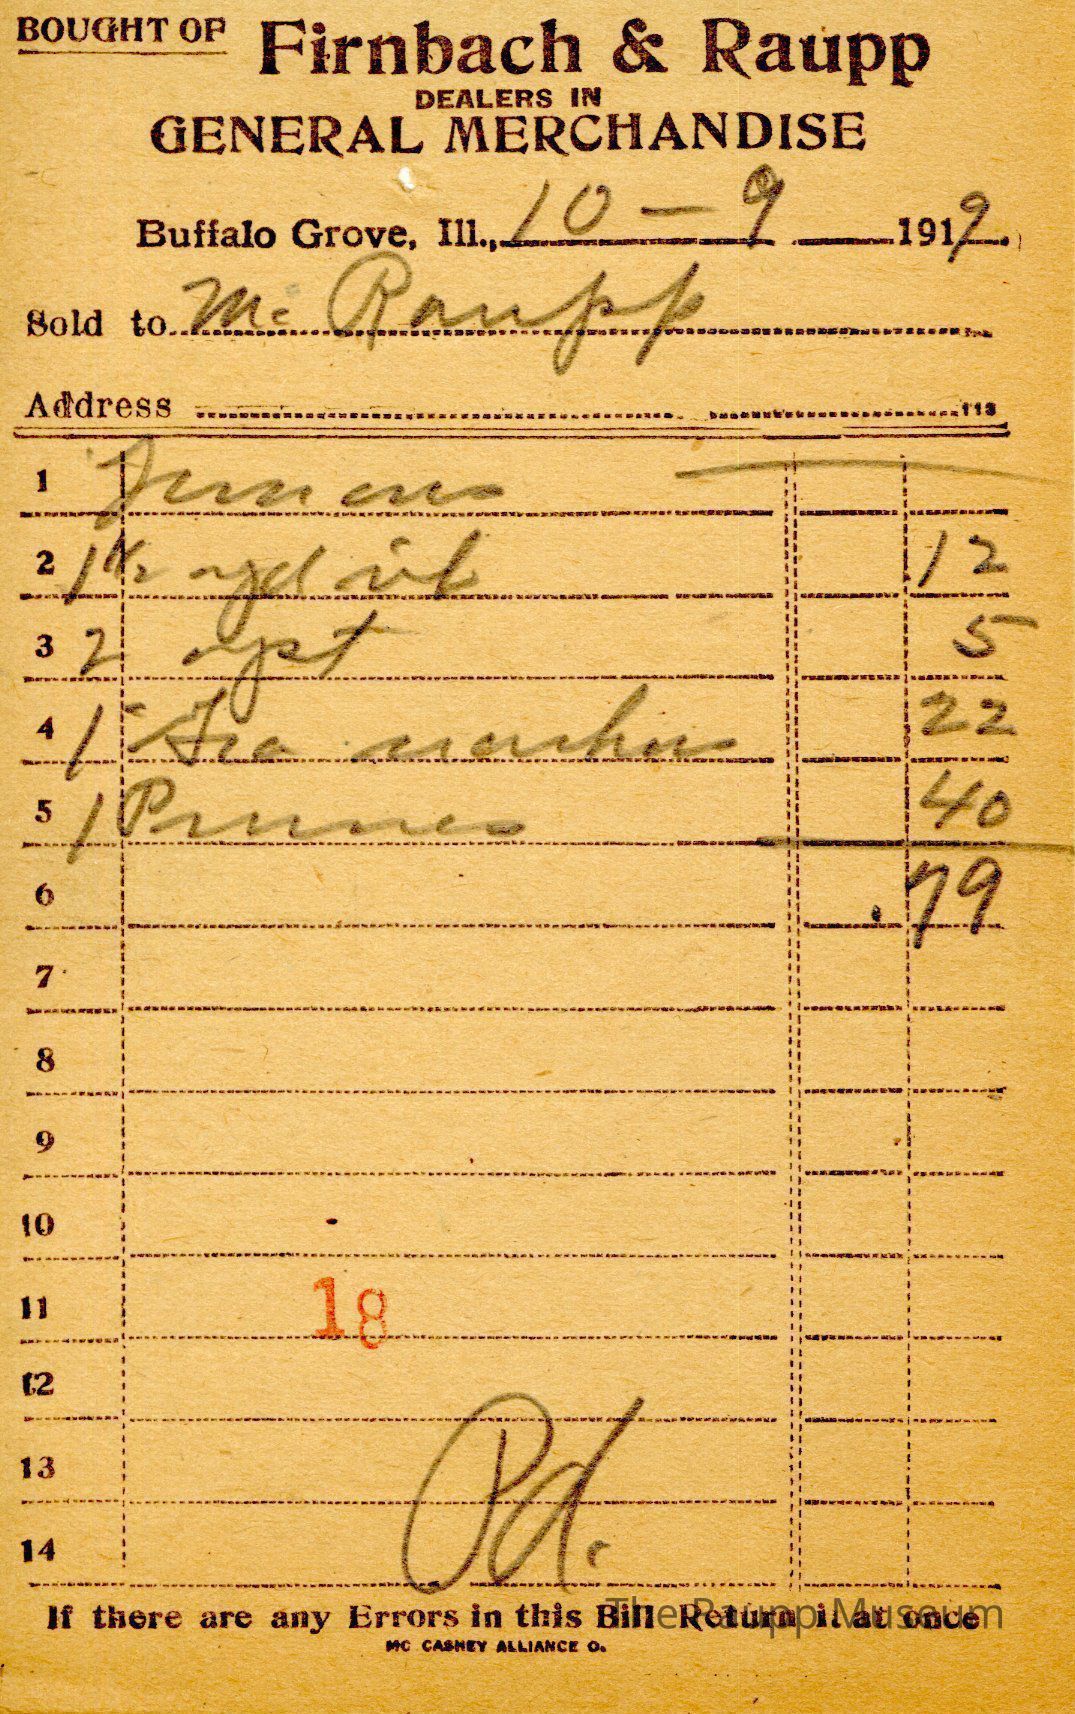 BOUGHT OF Firnbach & Raupp
DEALERS IN
GENERAL MERCHANDISE
Buffalo Grove, Ill., 10 - 9 1919.
Sold to Mc Raupp
Address 113
1
2 1 1/2 yd 12
3 2 5
4 1 22
5 1 Prunes 40
6 .79
7
8
9
10
11 18
12
13
14
Pd.
If there are any Errors in this Bill Return it at once
The Raupp Museum
MC CASKEY ALLIANCE O.